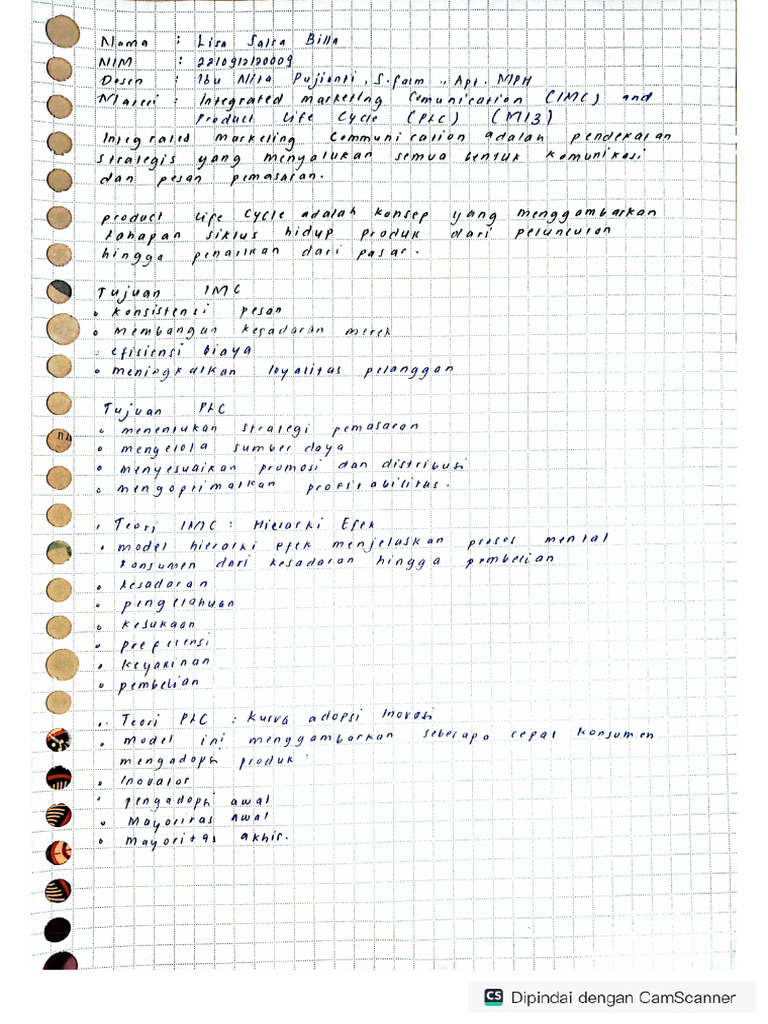 Nama : Lisa Salsa Billa
NIM : 2210912120009
Dosen : Ibu Nita Pujianti, S.Farm., Apt. MPH
Materi : Integrated marketing Comunication (IMC) and
Product Life Cycle (PLC) (M13)
Integrates marketing Communication adalah pendekatan
strategis yang menyatukan semua bentuk komunikasi
dan pesan pemasaran.
product Life Cycle adalah konsep yang menggambarkan
tahapan siklus hidup produk dari peluncuran
hingga penarikan dari pasar.
Tujuan IMC
• konsistensi pesan
• membangun kesadaran merek
• efisiensi biaya
• meningkatkan loyalitas pelanggan
Tujuan PLC
• menentukan strategi pemasaran
• mengelola sumber daya
• menyesuaikan promosi dan distribusi
• mengoptimalkan profitabilitas.
• Teori IMC : Hierarki Efek
• model hierarki efek menjelaskan proses mental
konsumen dari kesadaran hingga pembelian
• kesadaran
• pengetahuan
• kesukaan
• preferensi
• keyakinan
• pembelian
• Teori PLC : kurva adopsi Inovasi
• model ini menggambarkan seberapa cepat konsumen
mengadopsi produk
• Inovator
• pengadopsi awal
• Mayoritas awal
• mayoritas akhir.
CS Dipindai dengan CamScanner